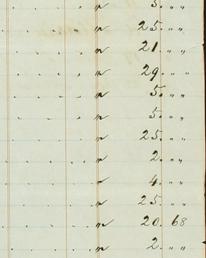 " 5. " "
" 25. " "
" 21. " "
" 29. " "
" 5. " "
" 5. " "
" 25. " "
" 2. " "
" 4. " "
" 25. " "
" 20. 68
" 2. " "